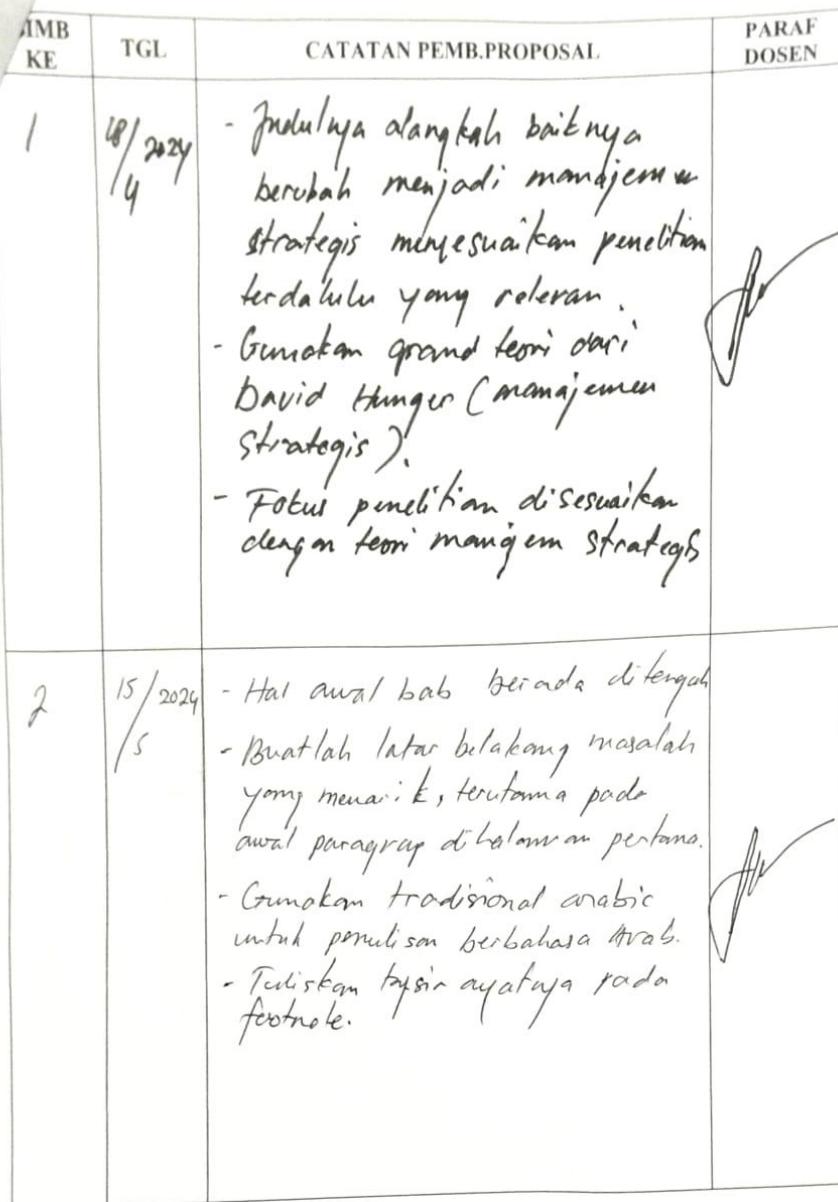 BIMB KE
TGL
CATATAN PEMB.PROPOSAL
PARAF DOSEN
1
18/4 2024
- Judulnya alangkah baiknya
berubah menjadi manajemen
strategis menyesuaikan penelitian
terdalulu yang relevan.
- Gunakan grand teori dari
David Hunger (manajemen
strategis).
- Fokus penelitian disesuaikan
dengan teori manajem strategis
2
15/5 2024
- Hal awal bab berada ditengah
- Buatlah latar belakang masalah
yang menarik, terutama pada
awal paragrap dihalaman pertama.
- Gunakan tradisional arabic
untuk penulisan berbahasa Arab.
- Tuliskan tafsir ayatnya pada
footnote.